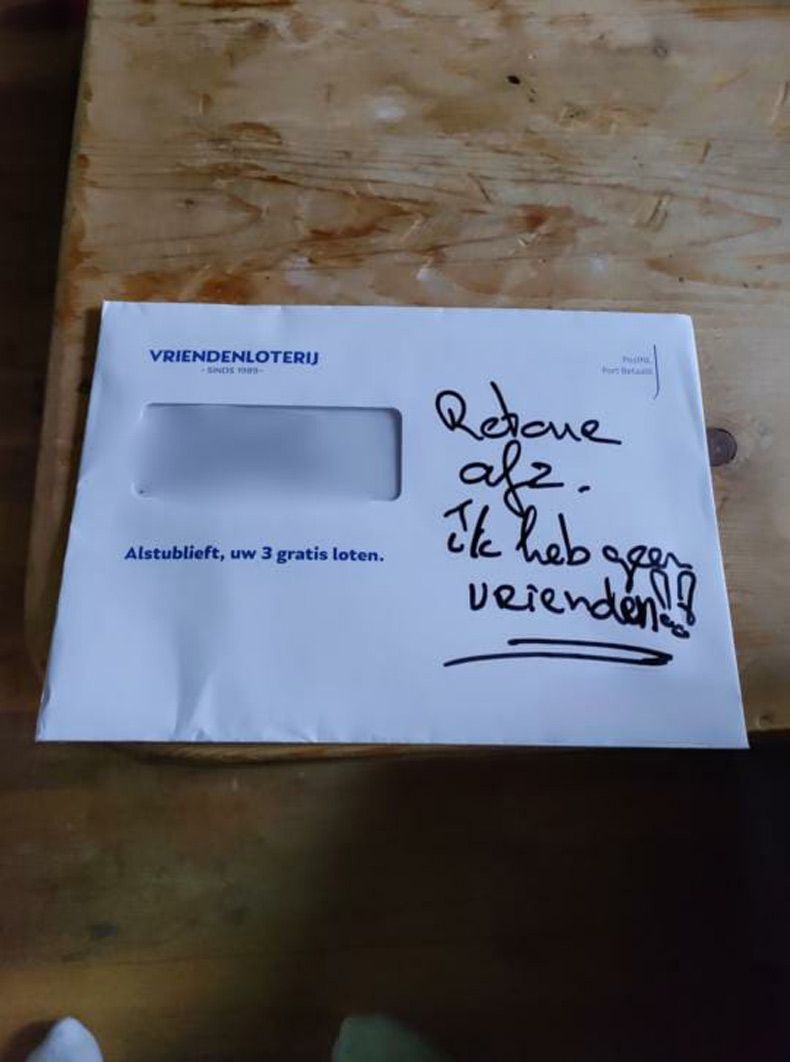 VRIENDENLOTERIJ
- SINDS 1989 -
PostNL
Port Betaald
Alstublieft, uw 3 gratis loten.
Retour
afz.
ik heb geen
vrienden!!